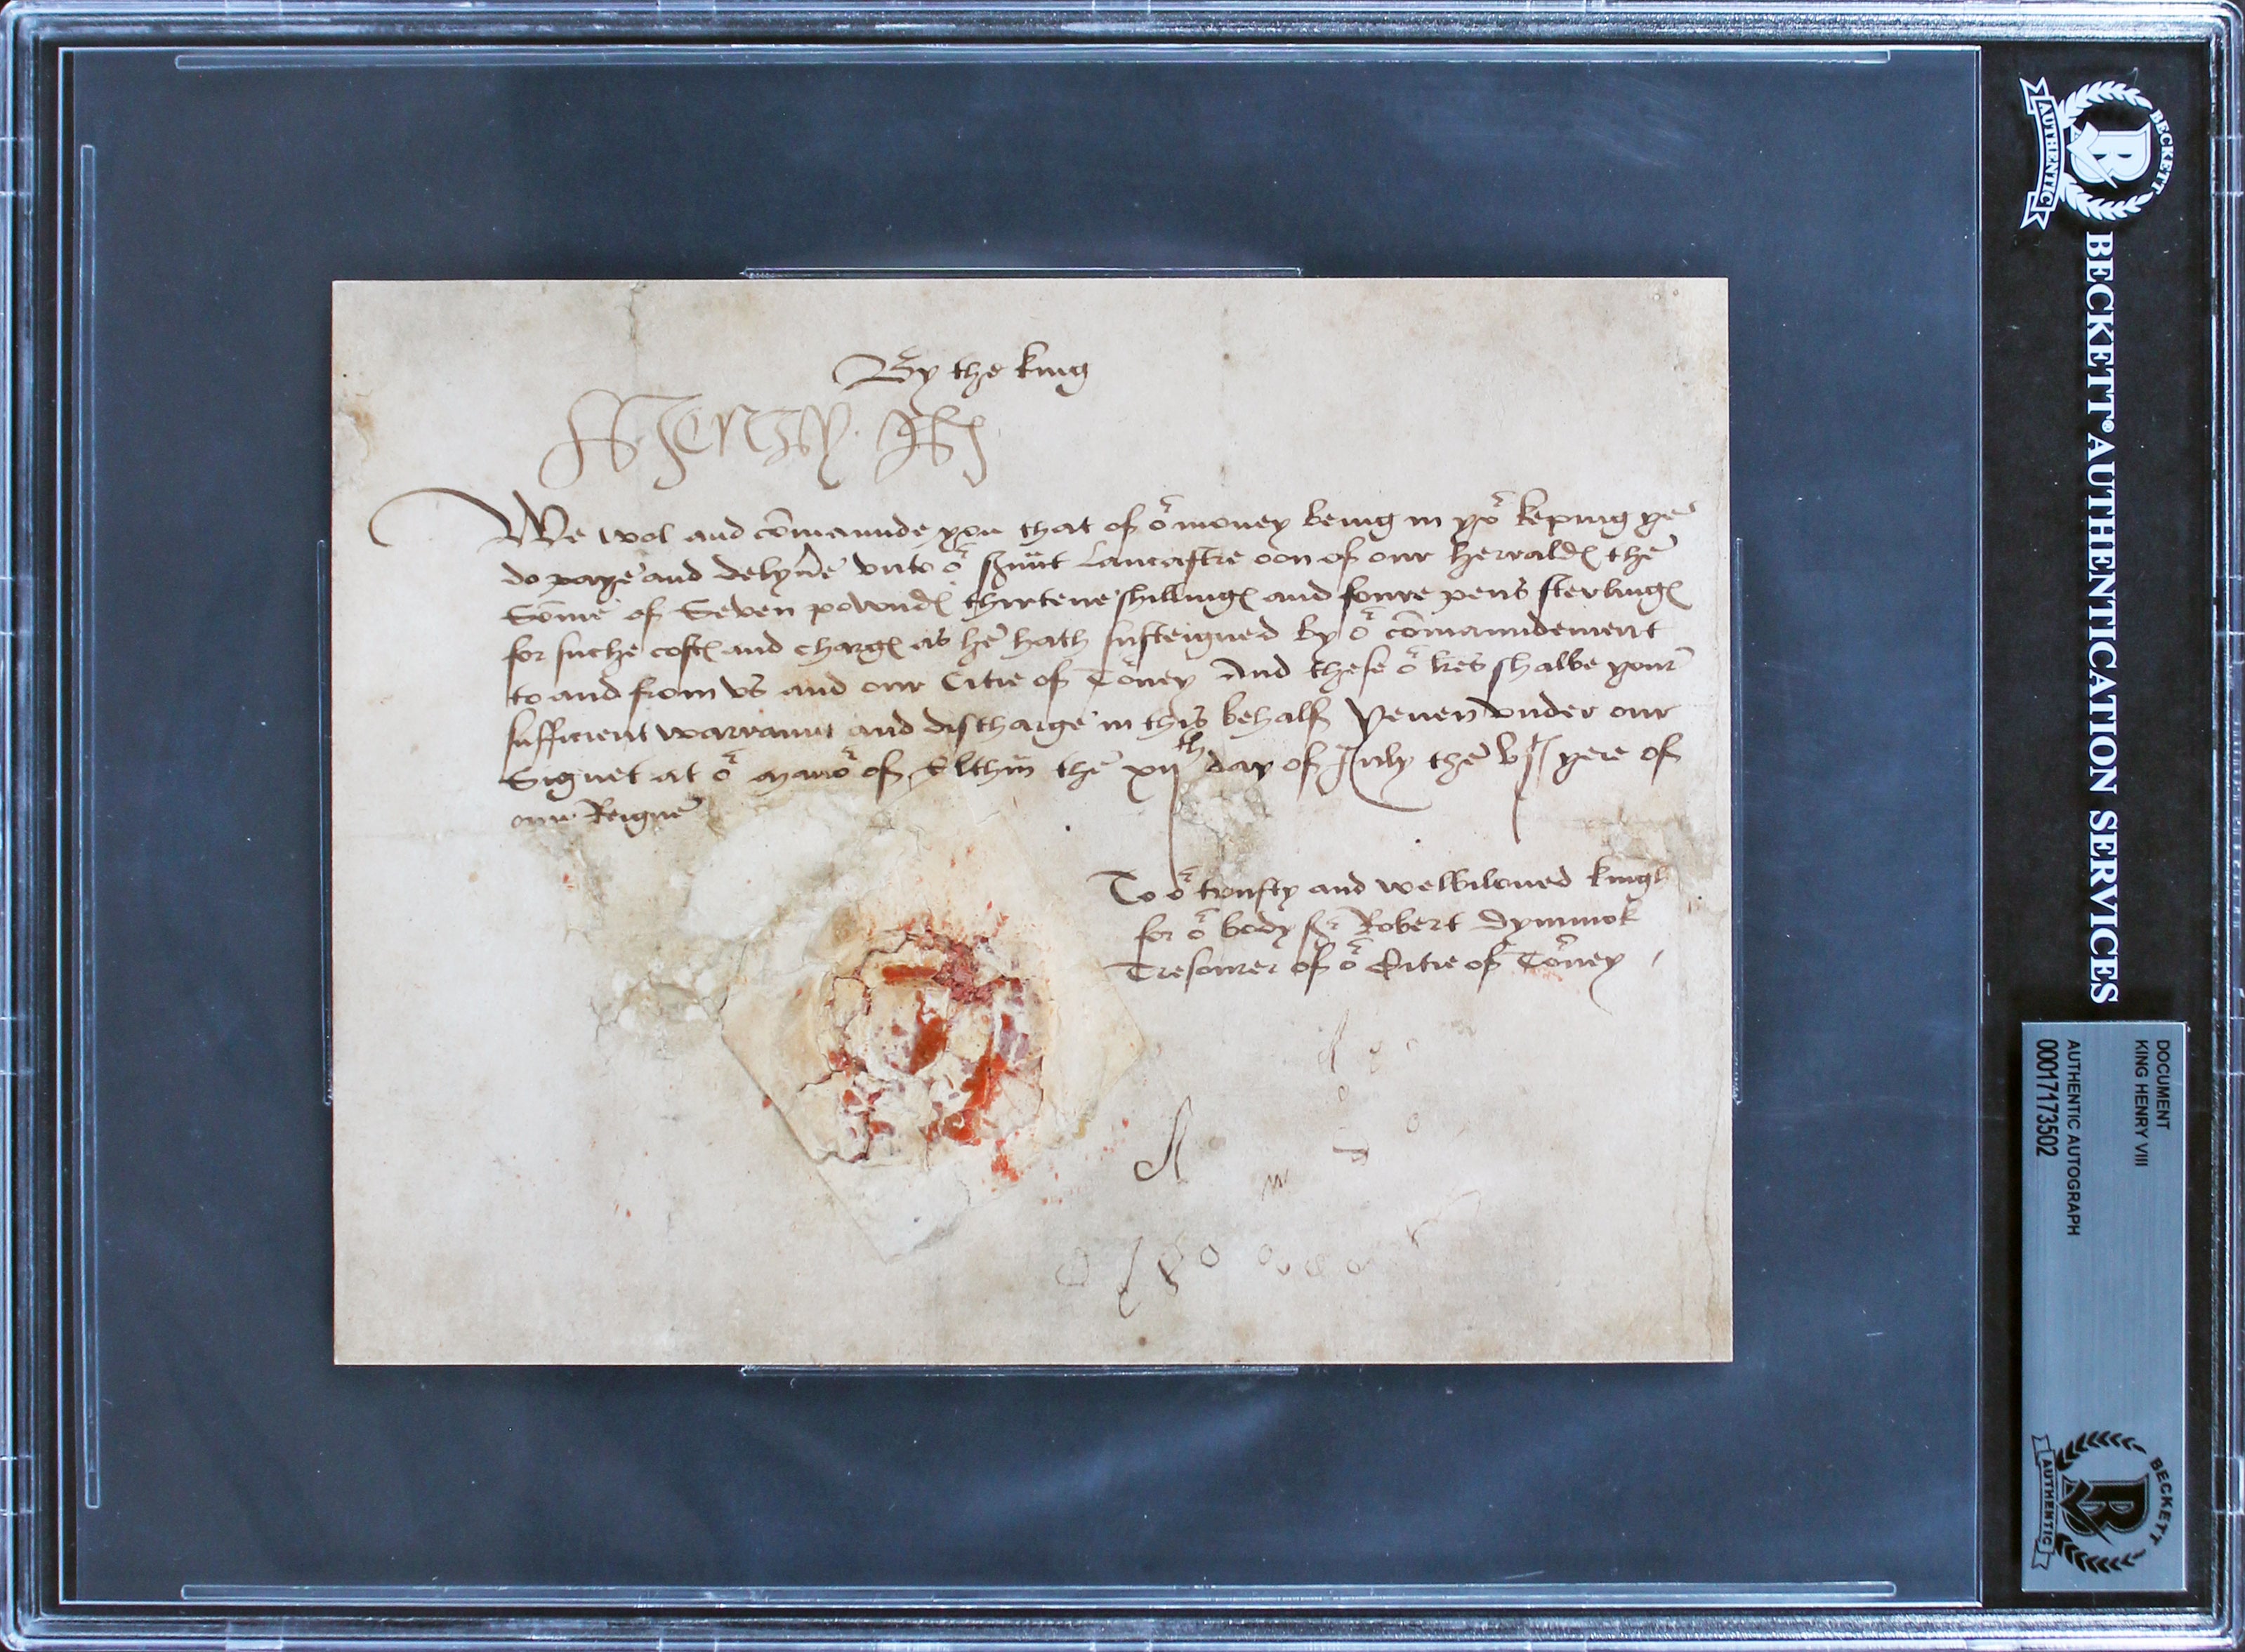 By the king
Henry R
We wol and cōmaunde you that of oʳ money being in yoʳ keping ye
do paye and delyūe vnto oʳ sūunt Lancastre oon of our herrald the
Sōme of Seven pownd thirtene shilling and foure pens sterling
for suche cost and charg as he hath susteigned by oʳ cōmaundement
to and from vs and our Citie of Torney And these oʳ lr̄es shalbe your
sufficient warraunt and discharge in this behalf Yeuen vnder our
Signet at oʳ manoʳ of Elthm̄ the xijth day of July the vj yere of
our Reigne
To oʳ trusty and welbiloued knight
for oʳ body Sr Robert Dymmok
Tresourer of oʳ Citie of Torney
BECKETT
AUTHENTIC
BECKETT® AUTHENTICATION SERVICES
DOCUMENT
KING HENRY VIII
AUTHENTIC AUTOGRAPH
0001717 3502
BECKETT
AUTHENTIC